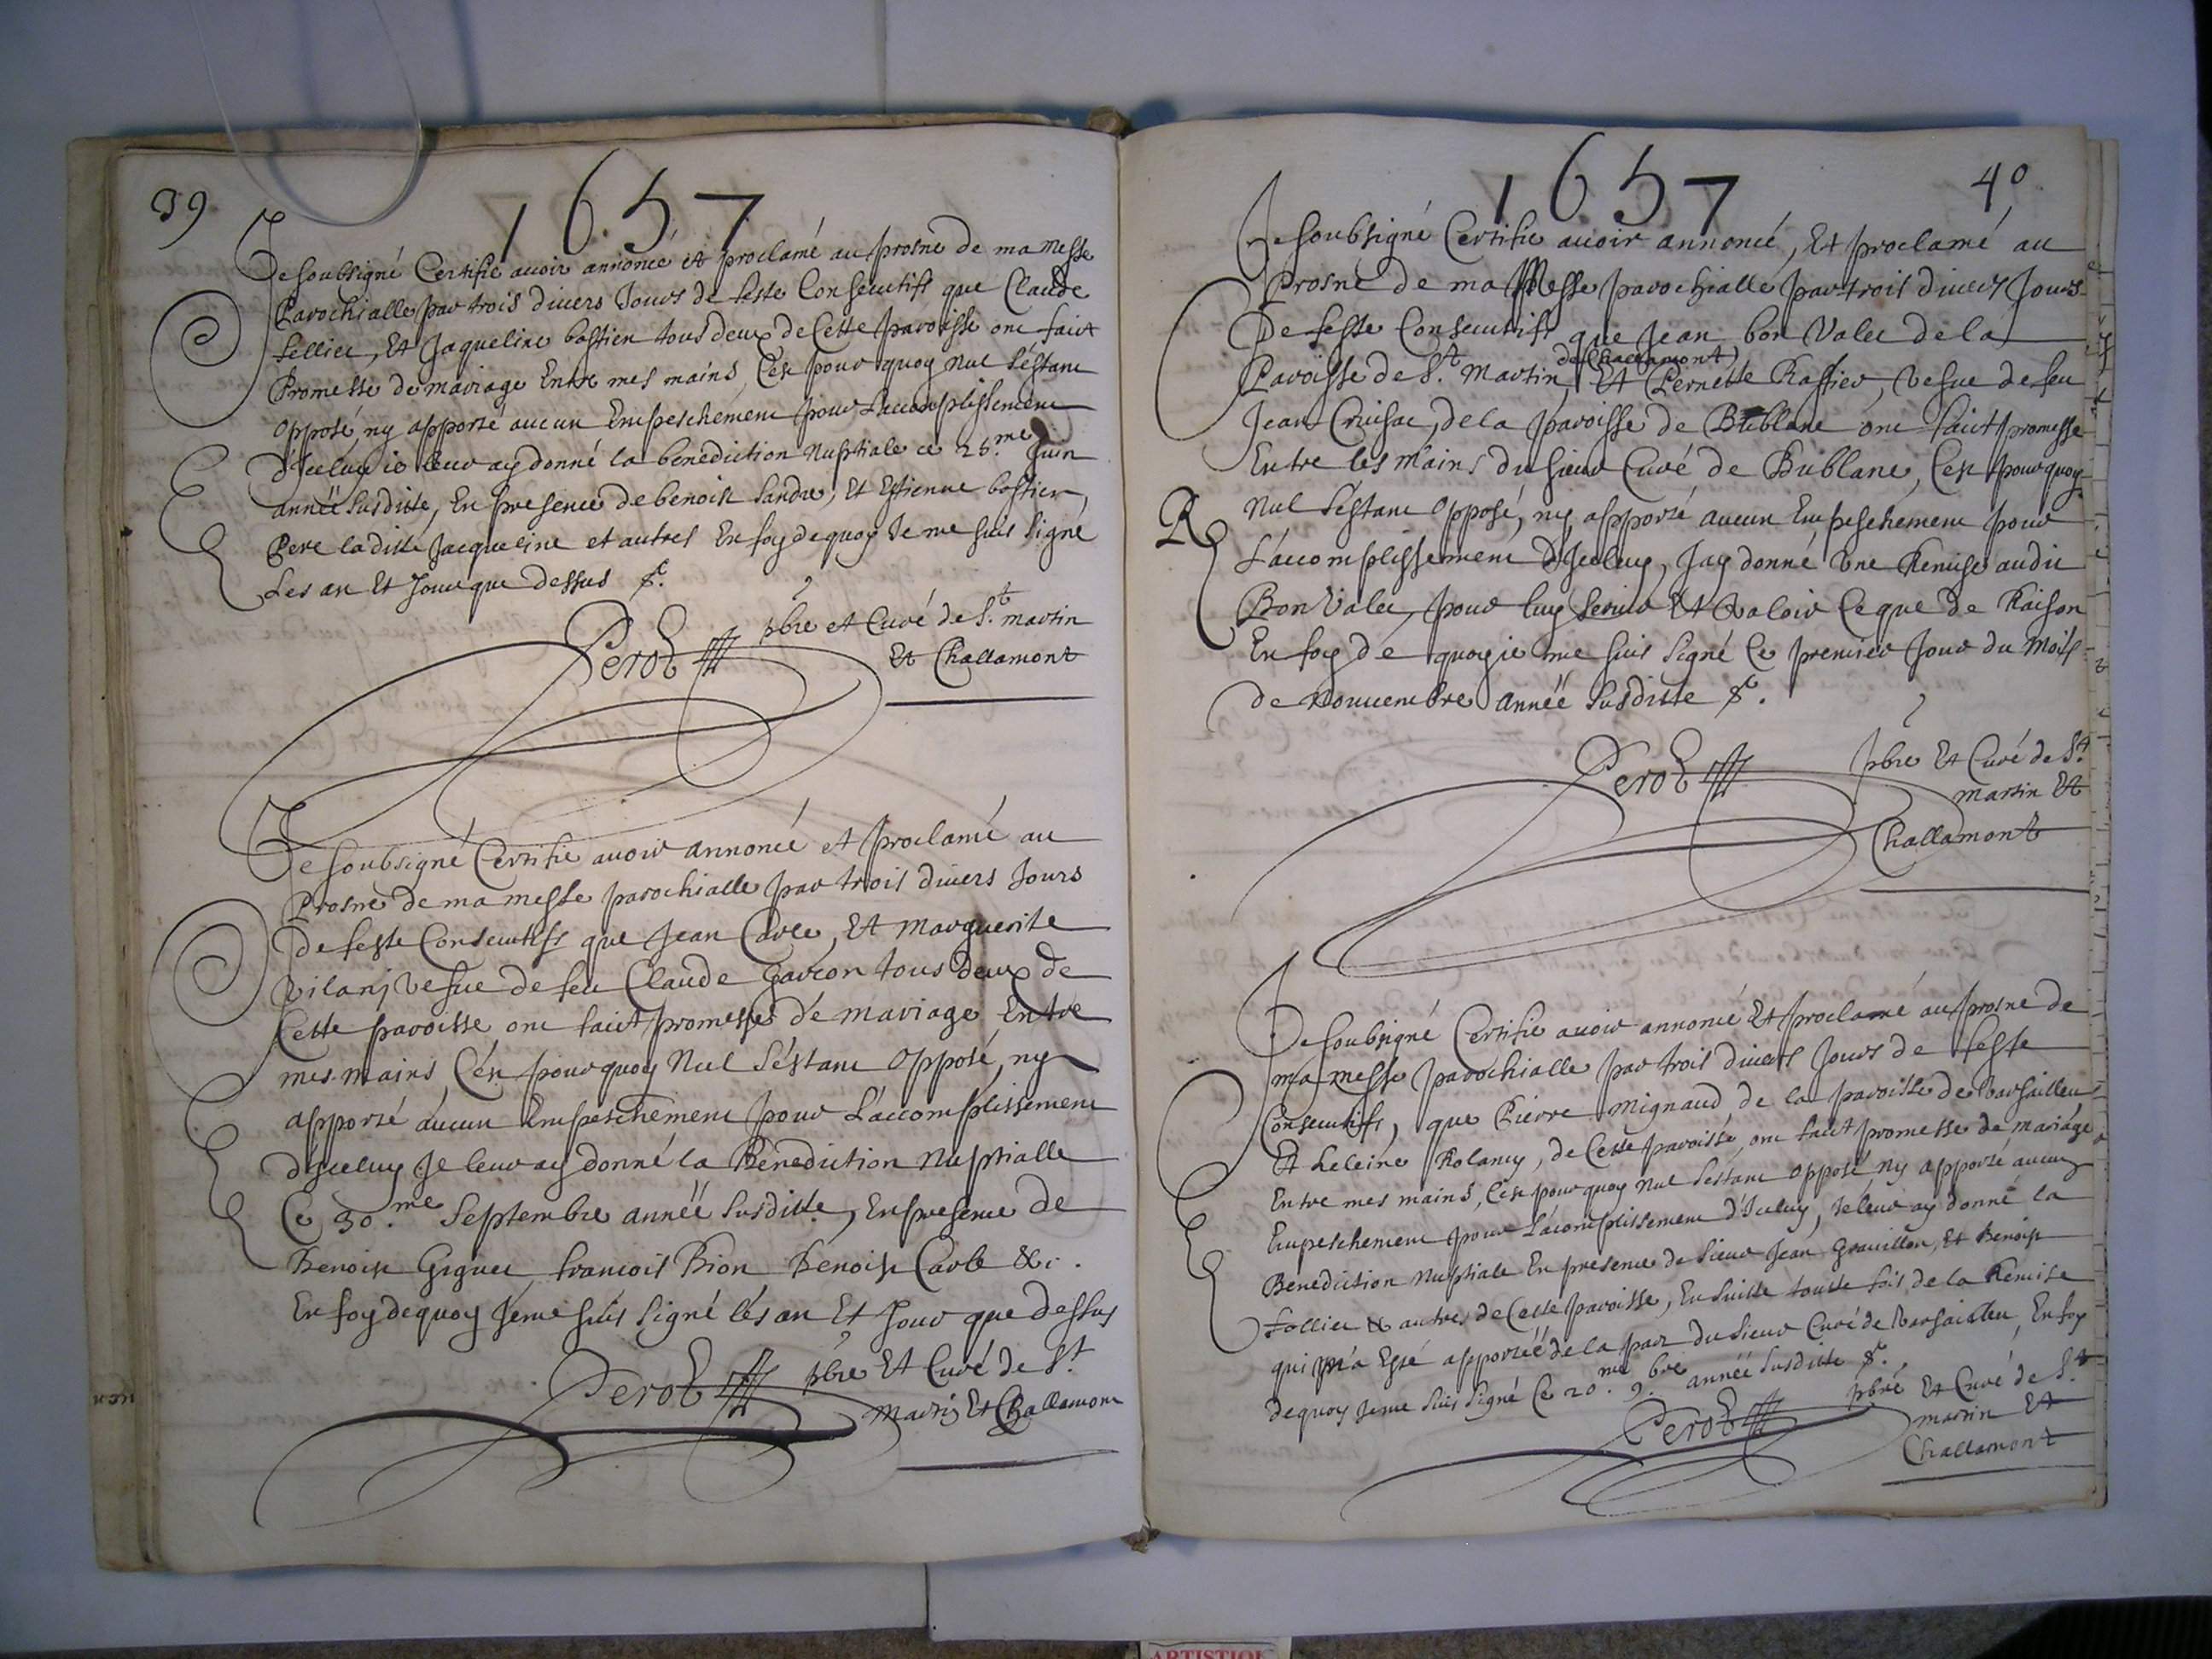 39
1657
Je soubsigné Certifie auoir annoncé et proclamé au prosne de ma messe
Parochialle par trois diuers Jours de feste Consecutifs que Claude
Fellier, Et Jaqueline bastien tous deux de Cette paroisse ont faict
Promesse de mariage Entre mes mains, C'est pour quoy nul S'éstant
Opposé, ny apporté aucun Empeschement pour L'accomplissement
d'Jceluy ie leur ay donné la benediction Nuptiale ce 25.me Juin
annéë susditte, En presence de benoist Landre, Et Estienne bastien,
Pere ladille Jacqueline et autres En foy de quoy Je me suis signé
Les an Et Jour que dessus &c.
Perot pbre et Curé de S.t martin
Et Challamont
Je soubsigné Certifie auoir annoncé et proclamé au
Prosne de ma messe parochialle par trois diuers Jours
De feste Consecutifs que Jean Carle, Et Marguerite
vilanj vefue de feu Claude garcon tous deux de
Cette paroisse ont faict promesse de mariage Entre
mes mains, C'est pourquoy Nul S'éstant Opposé, ny
apporté aucun Empeschement pour L'accomplissement
d'Jceluy Je leur ay donné la Benediction Nuptialle
Ce 30.me Septembre annéë susditte, En presence de
Benoist Giguet francois Rion Benoist Carle &c.
En foy de quoy Je me suis signé lés an Et Jour que dessus
Perot pbre Et Curé de S.t
Martin Et Challamont
1657
40
Je soubsigné Certifie auoir annoncé, Et proclamé au
Prosne de ma Messe parochialle par trois diuers Jours
De feste Consecutifs que Jean bon Valet de la
Paroisse de S.t Martin de Challamont, Et Pernette Rassier, Vefue de feu
Jean Cruisac, de la paroisse de Bublane ont faict promesse
Entre les mains du sieur Curé de Bublane, C'est pourquoy
R
Nul S'éstant Opposé, ny apporté aucun Empeschement pour
L'accomplissement d'Jceluy, J'ay donné Vne Remise audit
Bon Valet, pour luy seruir Et Valoir Ce que de Raison
En foy dé quoy ie me suis signé Ce premier Jour du Mois
de Nouuembre annéë susditte &c.
Perot pbre Et Curé de S.t
martin Et
Challamont
Je soubsigné Certifie auoir annoncé Et proclamé au prosne de
ma messe parochialle par trois diuers Jours de feste
Consecutifs, que Pierre Mignaud, de la paroisse de Varsailleu
Et heleine Rolancy, de Cette paroisse, ont faict promesse de mariage
Entre mes mains, C'est pourquoy Nul S'estant opposé ny apporté aucun
Empeschement pour L'acomplissement d'Jceluy, Je leur ay donné la
Benediction Nuptiale En presence de sieur Jean Grauillon, Et Benoist
Follier & autres de Cette paroisse, En suitte toutte fois de la Remise
qui m'a Esté apportéë de la part du sieur Curé de Varsailleu, En foy
de quoy Je me suis signé Ce 20.me 9.bre annéë susditte &c.
Perot pbre Et Curé de S.t
martin Et
Challamont
ARTISTIQUE